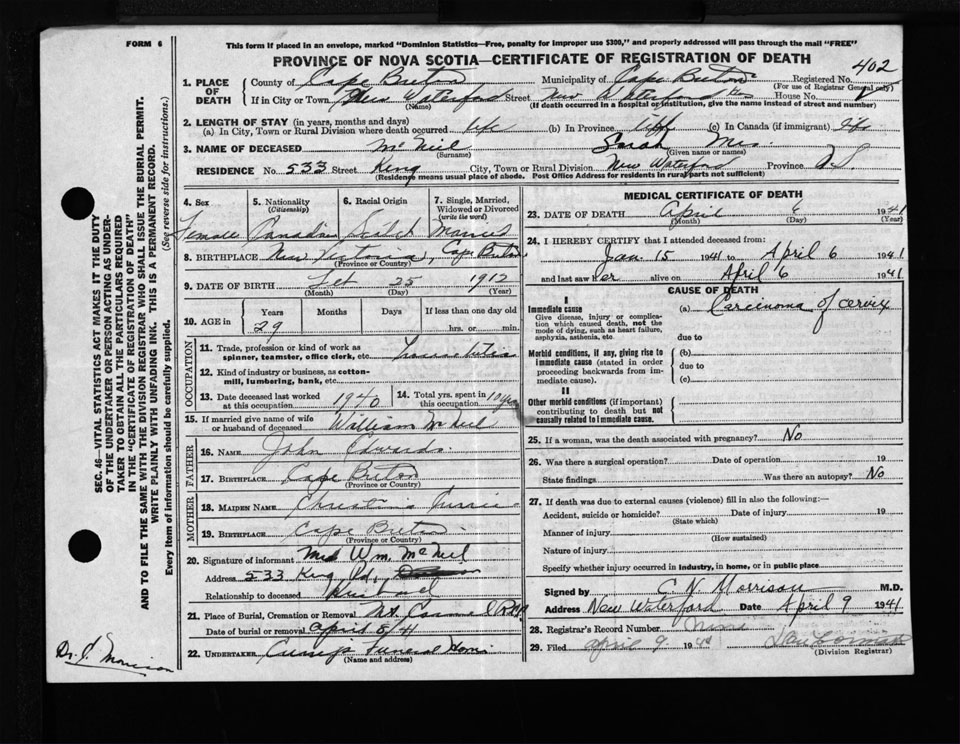 FORM 6
This form if placed in an envelope, marked "Dominion Statistics—Free, penalty for improper use $300," and properly addressed will pass through the mail "FREE"
PROVINCE OF NOVA SCOTIA—CERTIFICATE OF REGISTRATION OF DEATH
1. PLACE OF DEATH County of Cape Breton Municipality of Cape Breton Registered No. 402
(For use of Registrar General only)
If in City or Town New Waterford Street New Waterford House No.
(Name) (If death occurred in a hospital or institution, give the name instead of street and number)
2. LENGTH OF STAY (in years, months and days)
(a) In City, Town or Rural Division where death occurred life (b) In Province life (c) In Canada (if immigrant) life
3. NAME OF DECEASED McNeil Sarah Mrs.
(Surname) (Given name or names)
RESIDENCE No. 533 Street King City, Town or Rural Division New Waterford Province N.S.
(Residence means usual place of abode. Post Office Address for residents in rural parts not sufficient)
4. Sex 5. Nationality (Citizenship) 6. Racial Origin 7. Single, Married, Widowed or Divorced (write the word)
Female Canadian Scotch Married
8. BIRTHPLACE New Victoria, Cape Breton
(Province or Country)
9. DATE OF BIRTH 25 1912
(Month) (Day) (Year)
10. AGE in Years Months Days If less than one day old
29 hrs. or min.
OCCUPATION
11. Trade, profession or kind of work as spinner, teamster, office clerk, etc.
12. Kind of industry or business, as cotton-mill, lumbering, bank, etc.
13. Date deceased last worked at this occupation 1940 14. Total yrs. spent in this occupation 10 yrs
15. If married give name of wife or husband of deceased William McNeil
FATHER
16. NAME John Edwards
17. BIRTHPLACE Cape Breton
(Province or Country)
MOTHER
18. MAIDEN NAME Christina
19. BIRTHPLACE Cape Breton
(Province or Country)
20. Signature of informant Wm. McNeil
Address 533 King Rd.,
Relationship to deceased Husband
21. Place of Burial, Cremation or Removal Mt. Carmel
Date of burial or removal April 8/41
22. UNDERTAKER Funeral Home
(Name and address)
MEDICAL CERTIFICATE OF DEATH
23. DATE OF DEATH April 6 1941
(Month) (Day) (Year)
24. I HEREBY CERTIFY that I attended deceased from:
Jan. 15 1941 to April 6 1941
and last saw her alive on April 6 1941
CAUSE OF DEATH
I
Immediate cause (a) Carcinoma of cervix
Give disease, injury or complication which caused death, not the mode of dying, such as heart failure, asphyxia, asthenia, etc.
due to
Morbid conditions, if any, giving rise to immediate cause (stated in order proceeding backwards from immediate cause).
(b)
due to
(c)
II
Other morbid conditions (if important) contributing to death but not causally related to immediate cause.
25. If a woman, was the death associated with pregnancy? No
26. Was there a surgical operation? Date of operation 19
State findings Was there an autopsy? No
27. If death was due to external causes (violence) fill in also the following:—
Accident, suicide or homicide? Date of injury 19
(State which)
Manner of injury
(How sustained)
Nature of injury
Specify whether injury occurred in Industry, in home, or in public place
Signed by C N Morrison M.D.
Address New Waterford Date April 9 1941
28. Registrar's Record Number
29. Filed April 9 19
(Division Registrar)
SEC. 46—VITAL STATISTICS ACT MAKES IT THE DUTY
OF THE UNDERTAKER OR PERSON ACTING AS UNDER-
TAKER TO OBTAIN ALL THE PARTICULARS REQUIRED
IN THE "CERTIFICATE OF REGISTRATION OF DEATH"
AND TO FILE THE SAME WITH THE DIVISION REGISTRAR WHO SHALL ISSUE THE BURIAL PERMIT.
WRITE PLAINLY WITH UNFADING INK. THIS IS A PERMANENT RECORD.
Every item of information should be carefully supplied. (See reverse side for instructions.)
Dr. J. Morrison